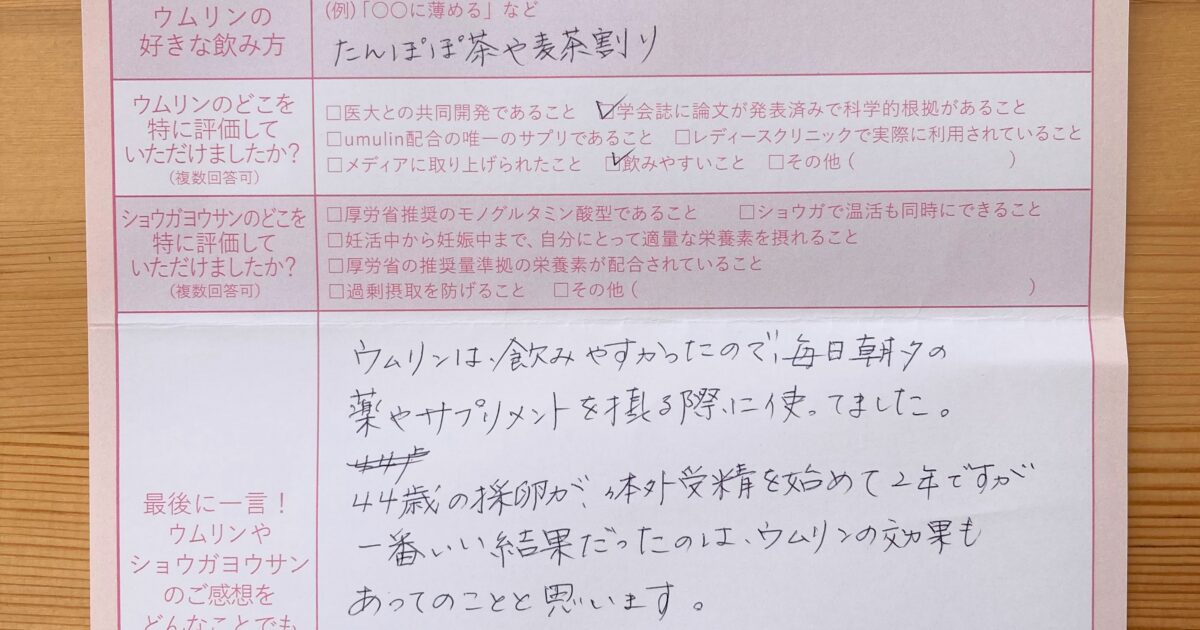 ウムリンの
好きな飲み方
(例)「〇〇に薄める」など
たんぽぽ茶や麦茶割り
ウムリンのどこを
特に評価して
いただけましたか?
(複数回答可)
□医大との共同開発であること ☑学会誌に論文が発表済みで科学的根拠があること
□umulin配合の唯一のサプリであること □レディースクリニックで実際に利用されていること
□メディアに取り上げられたこと ☑飲みやすいこと □その他( )
ショウガヨウサンのどこを
特に評価して
いただけましたか?
(複数回答可)
□厚労省推奨のモノグルタミン酸型であること □ショウガで温活も同時にできること
□妊活中から妊娠中まで、自分にとって適量な栄養素を摂れること
□厚労省の推奨量準拠の栄養素が配合されていること
□過剰摂取を防げること □その他( )
最後に一言!
ウムリンや
ショウガヨウサン
のご感想を
どんなことでも
ウムリンは、飲みやすかったので、毎日朝夕の
薬やサプリメントを摂る際に使ってました。
44歳の採卵が、体外受精を始めて2年ですが
一番いい結果だったのは、ウムリンの効果も
あってのことと思います。